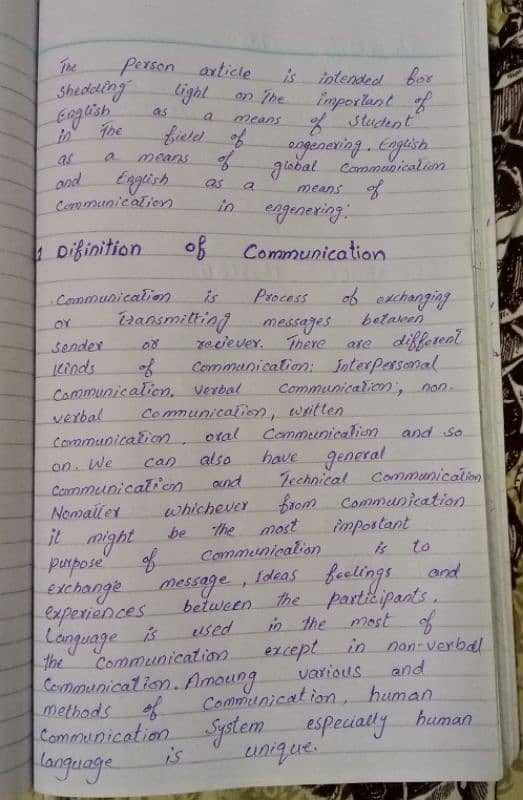 The person article is intended for
shedding light on the important of
English as a means of student
in the field of engenering. English
as a means of global communication
and English as a means of
communication in engenering.
1 Difinition of Communication
Communication is Process of exchanging
or transmitting messages between
sender or reciever. There are different
kinds of communication: InterPersonal
Communication, verbal communication, non-
verbal communication, written
communication, oral communication and so
on. We can also have general
communication and Technical communication
Nomatter whichever from communication
it might be the most important
purpose of communication is to
exchange message, Ideas feelings and
experiences between the participants.
Language is used in the most of
the communication except in non-verbal
Communication. Amoung various and
methods of communication, human
Communication System especially human
language is unique.